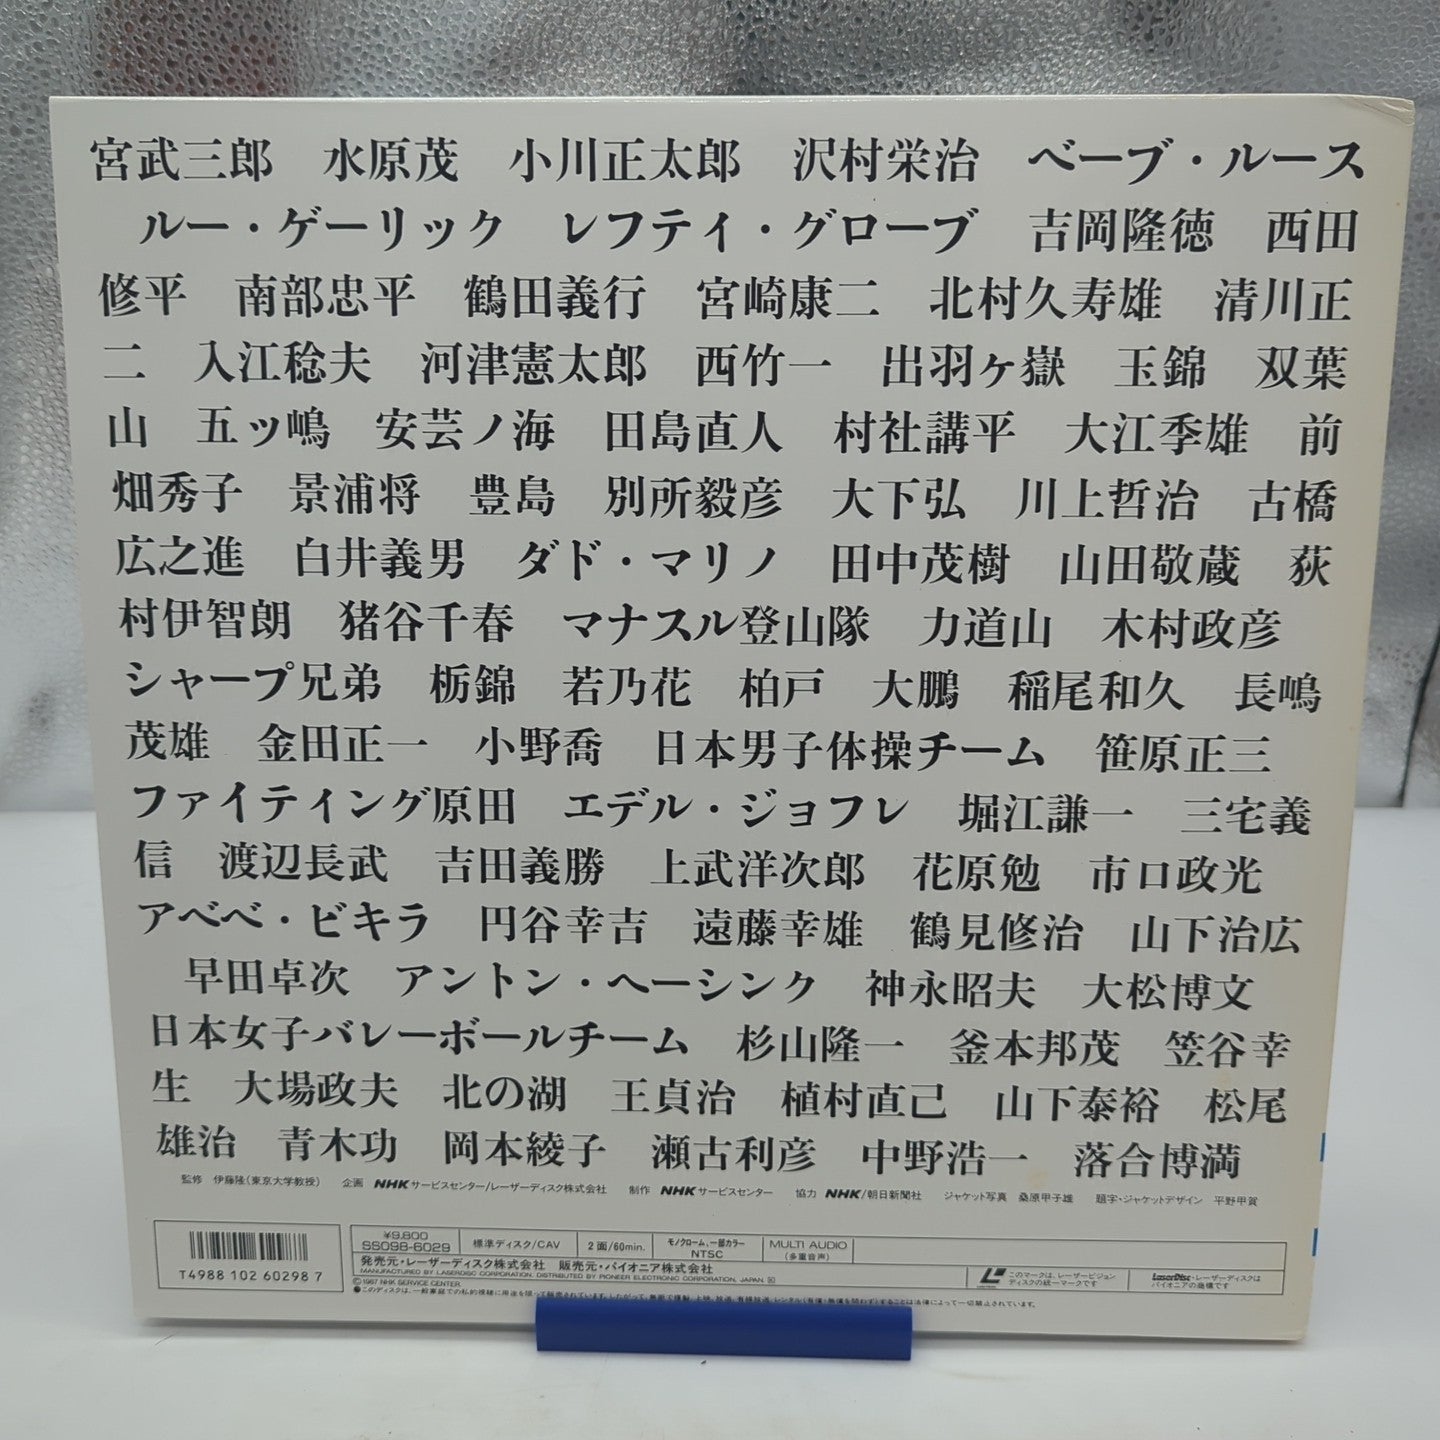 宮武三郎　水原茂　小川正太郎　沢村栄治　ベーブ・ルース
ルー・ゲーリック　レフティ・グローブ　吉岡隆徳　西田
修平　南部忠平　鶴田義行　宮崎康二　北村久寿雄　清川正
二　入江稔夫　河津憲太郎　西竹一　出羽ヶ嶽　玉錦　双葉
山　五ッ嶋　安芸ノ海　田島直人　村社講平　大江季雄　前
畑秀子　景浦将　豊島　別所毅彦　大下弘　川上哲治　古橋
広之進　白井義男　ダド・マリノ　田中茂樹　山田敬蔵　荻
村伊智朗　猪谷千春　マナスル登山隊　力道山　木村政彦
シャープ兄弟　栃錦　若乃花　柏戸　大鵬　稲尾和久　長嶋
茂雄　金田正一　小野喬　日本男子体操チーム　笹原正三
ファイティング原田　エデル・ジョフレ　堀江謙一　三宅義
信　渡辺長武　吉田義勝　上武洋次郎　花原勉　市口政光
アベベ・ビキラ　円谷幸吉　遠藤幸雄　鶴見修治　山下治広
早田卓次　アントン・ヘーシンク　神永昭夫　大松博文
日本女子バレーボールチーム　杉山隆一　釜本邦茂　笠谷幸
生　大場政夫　北の湖　王貞治　植村直己　山下泰裕　松尾
雄治　青木功　岡本綾子　瀬古利彦　中野浩一　落合博満
監修　伊藤隆(東京大学教授)　企画　NHKサービスセンター/レーザーディスク株式会社　制作　NHKサービスセンター　協力　NHK/朝日新聞社　ジャケット写真　桑原甲子雄　題字・ジャケットデザイン　平野甲賀
T4988102602987
¥9,800
SS098-6029
標準ディスク/CAV
2面/60min.
モノクローム、一部カラー
NTSC
MULTI AUDIO
(多重音声)
発売元・レーザーディスク株式会社　販売元・パイオニア株式会社
MANUFACTURED BY LASERDISC CORPORATION, DISTRIBUTED BY PIONEER ELECTRONIC CORPORATION, JAPAN.
©1987 NHK SERVICE CENTER
このマークは、レーザービジョン
ディスクの統一マークです
LaserDisc・レーザーディスクは
パイオニアの商標です